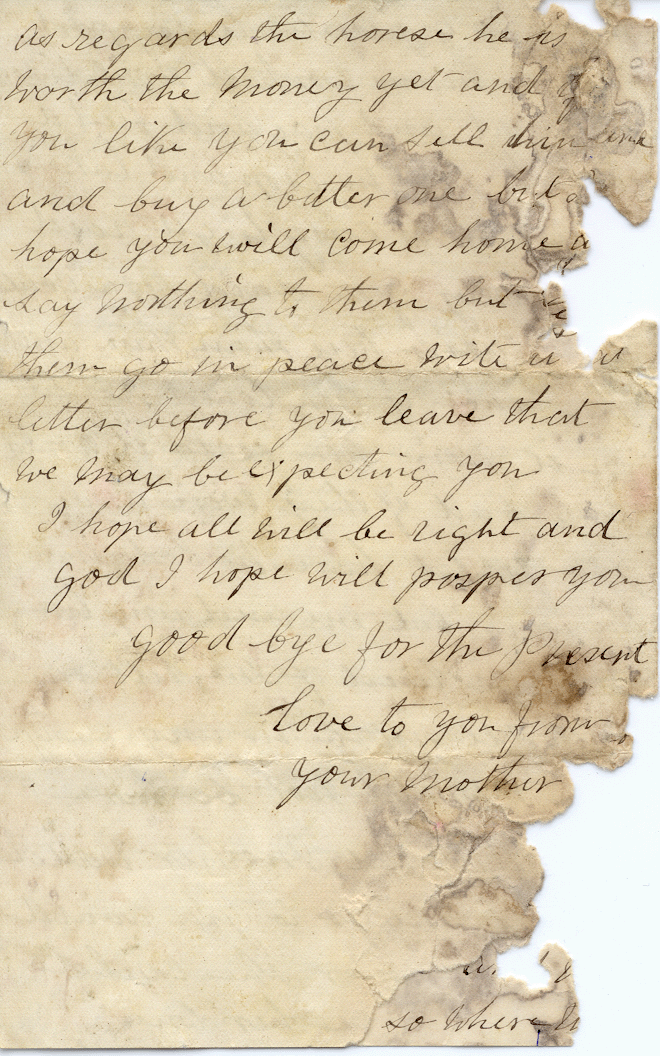 as regards the horese he is
worth the money yet and
you like you can sell him
and buy a better one but
hope you will come home
say nothing to them but
them go in peace write
letter before you leave that
we may be expecting you
I hope all will be right and
god I hope will posper you
good bye for the Present
love to you from
your Mother
so where